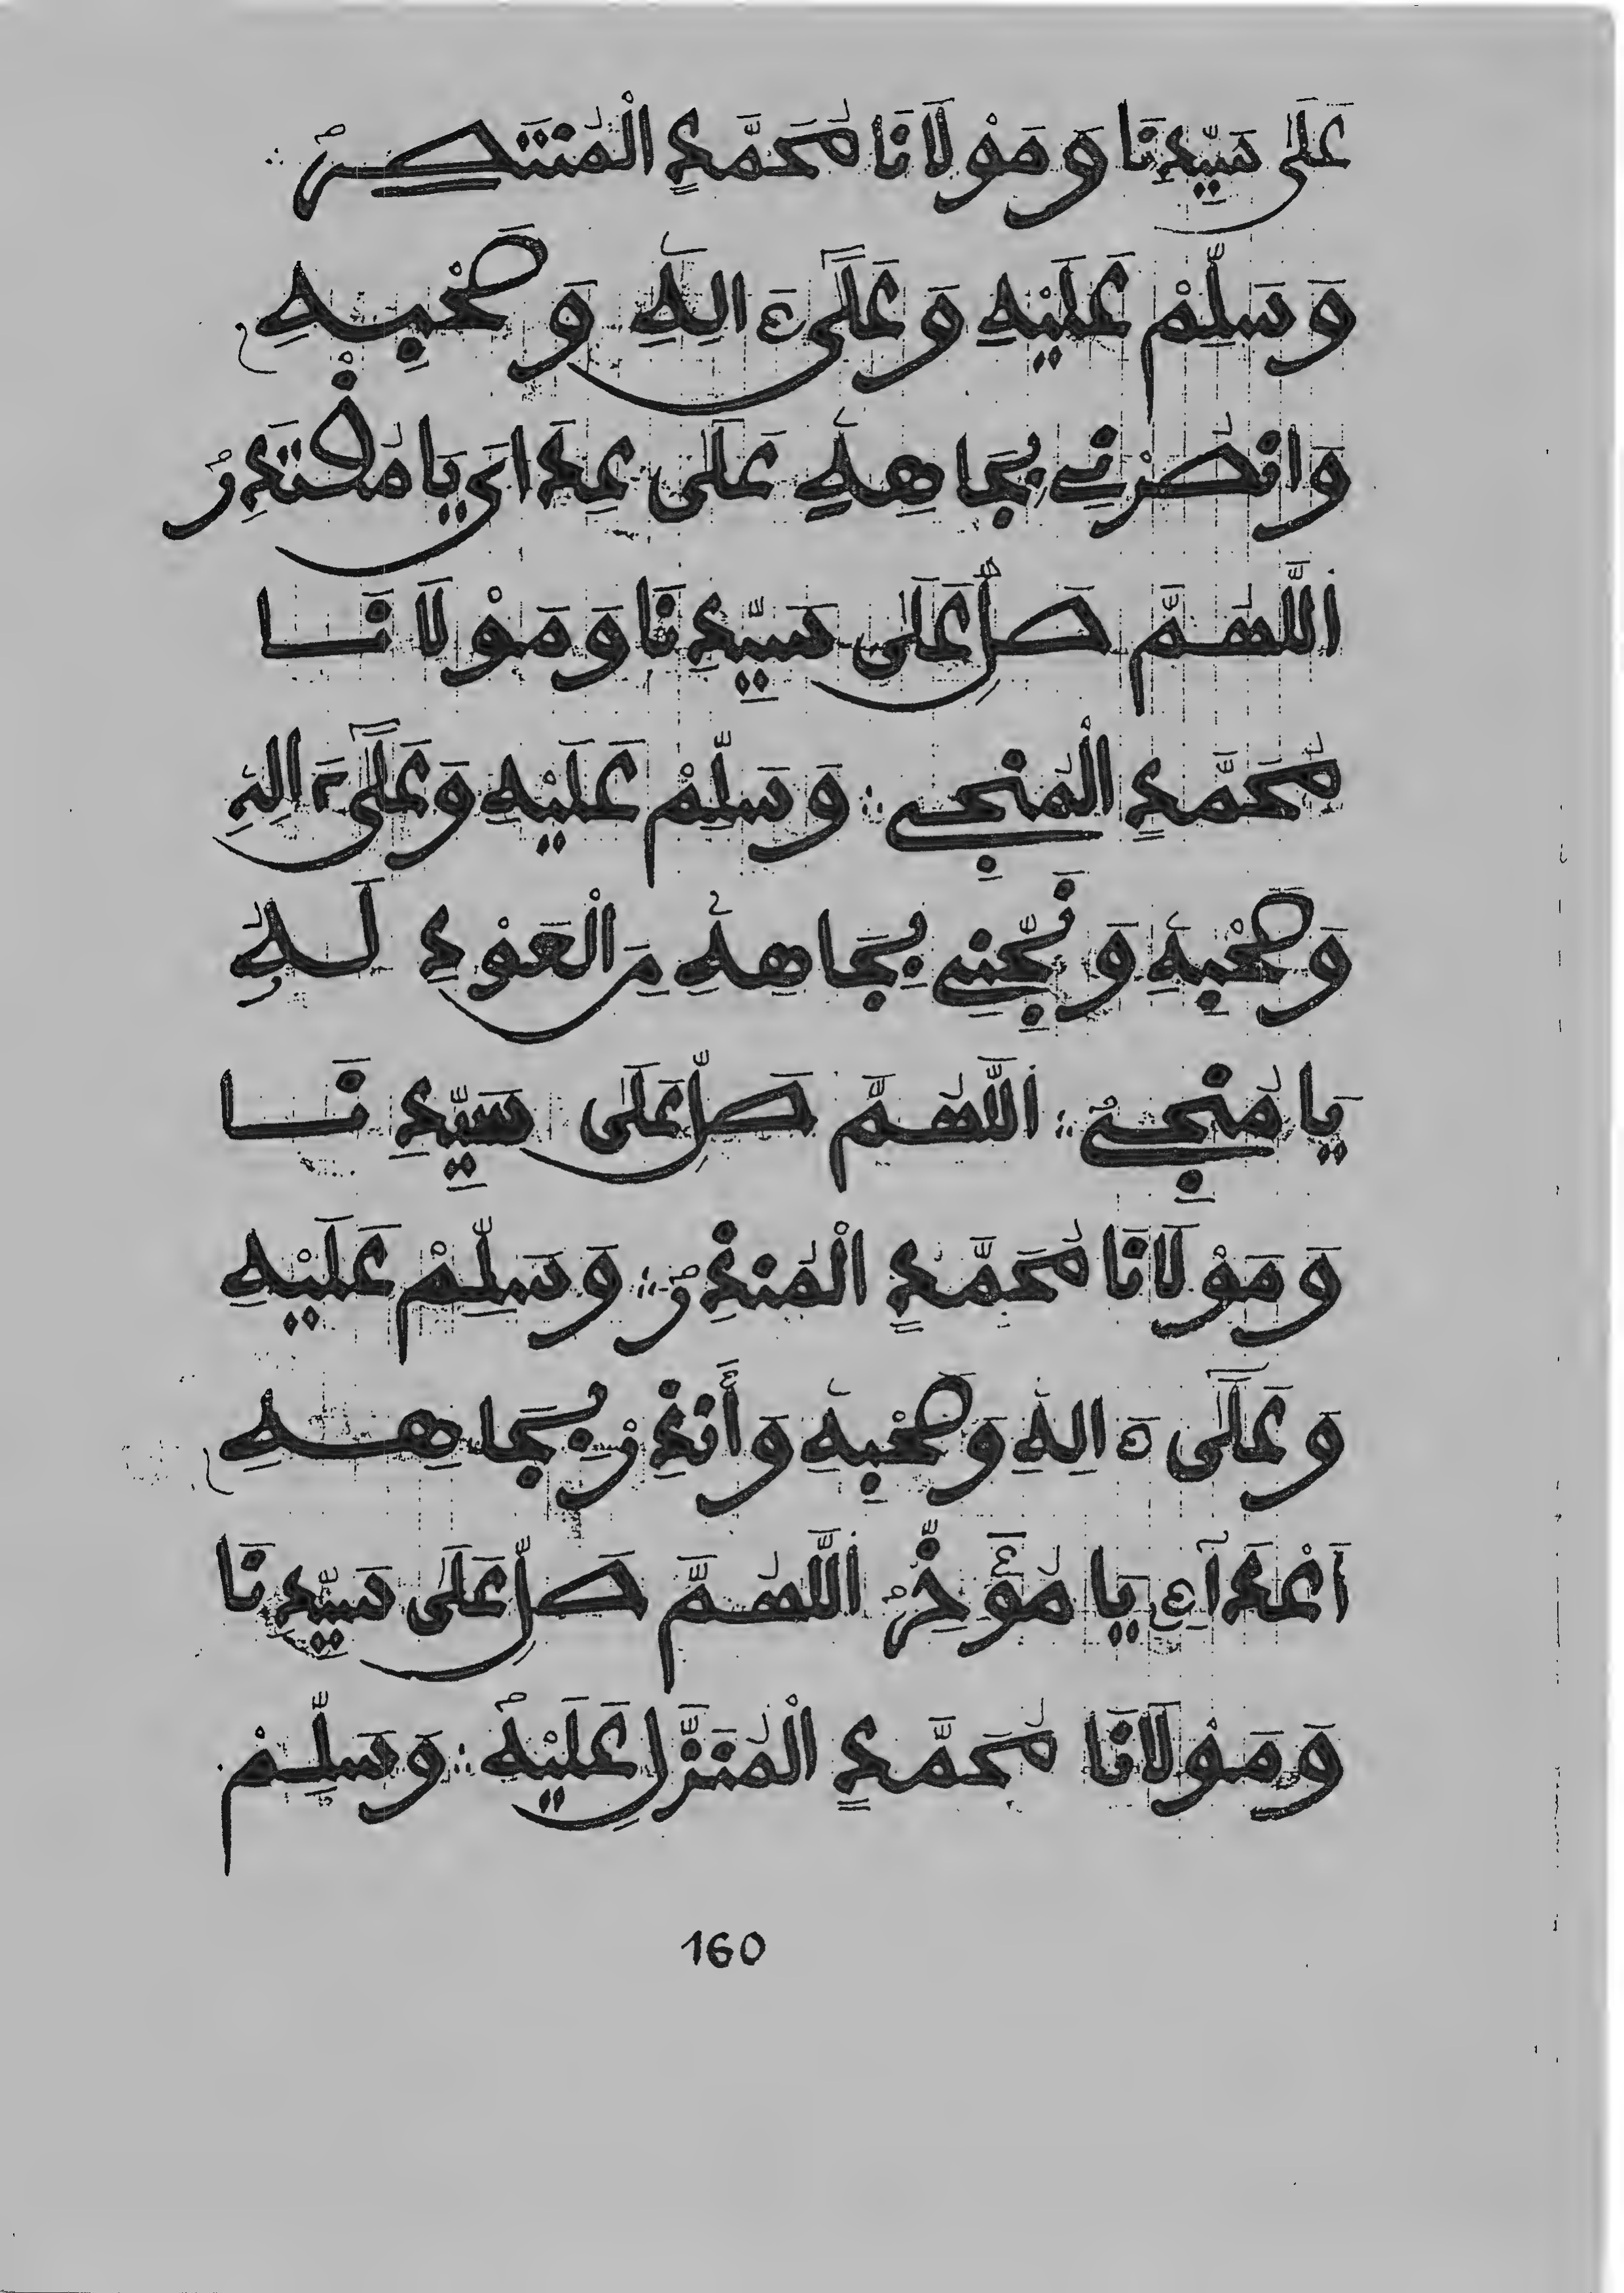 عَلَى سَيِّدِنَا وَمَوْلَانَا مُحَمَّدٍ الْمُنْتَصِرُ ∴
وَسَلِّمْ عَلَيْهِ وَعَلَىٰ ءَالِهِ وَصَحْبِهِ
وَانْصُرْنِي بِجَاهِهِ عَلَى عِدَايَ يَا مُقْتَدِرُ
اللَّهُمَّ صَلِّ عَلَى سَيِّدِنَا وَمَوْلَانَا
مُحَمَّدٍ الْمُنْجِي ∴ وَسَلِّمْ عَلَيْهِ وَعَلَىٰ ءَالِهِ
وَصَحْبِهِ وَنَجِّنِي بِجَاهِهِ مِنَ الْعَوْدِ لَهُ
يَا مُنْجِي ∴ اللَّهُمَّ صَلِّ عَلَى سَيِّدِنَا
وَمَوْلَانَا مُحَمَّدٍ الْمُنْذِرُ ∴ وَسَلِّمْ عَلَيْهِ
وَعَلَىٰ ءَالِهِ وَصَحْبِهِ وَأَنْذِرْ بِجَاهِهِ
اَعْدَاءِ يَا مُؤَخِّرُ اللَّهُمَّ صَلِّ عَلَى سَيِّدِنَا
وَمَوْلَانَا مُحَمَّدٍ الْمُنَزَّلِ عَلَيْهِ ∴ وَسَلِّمْ
160